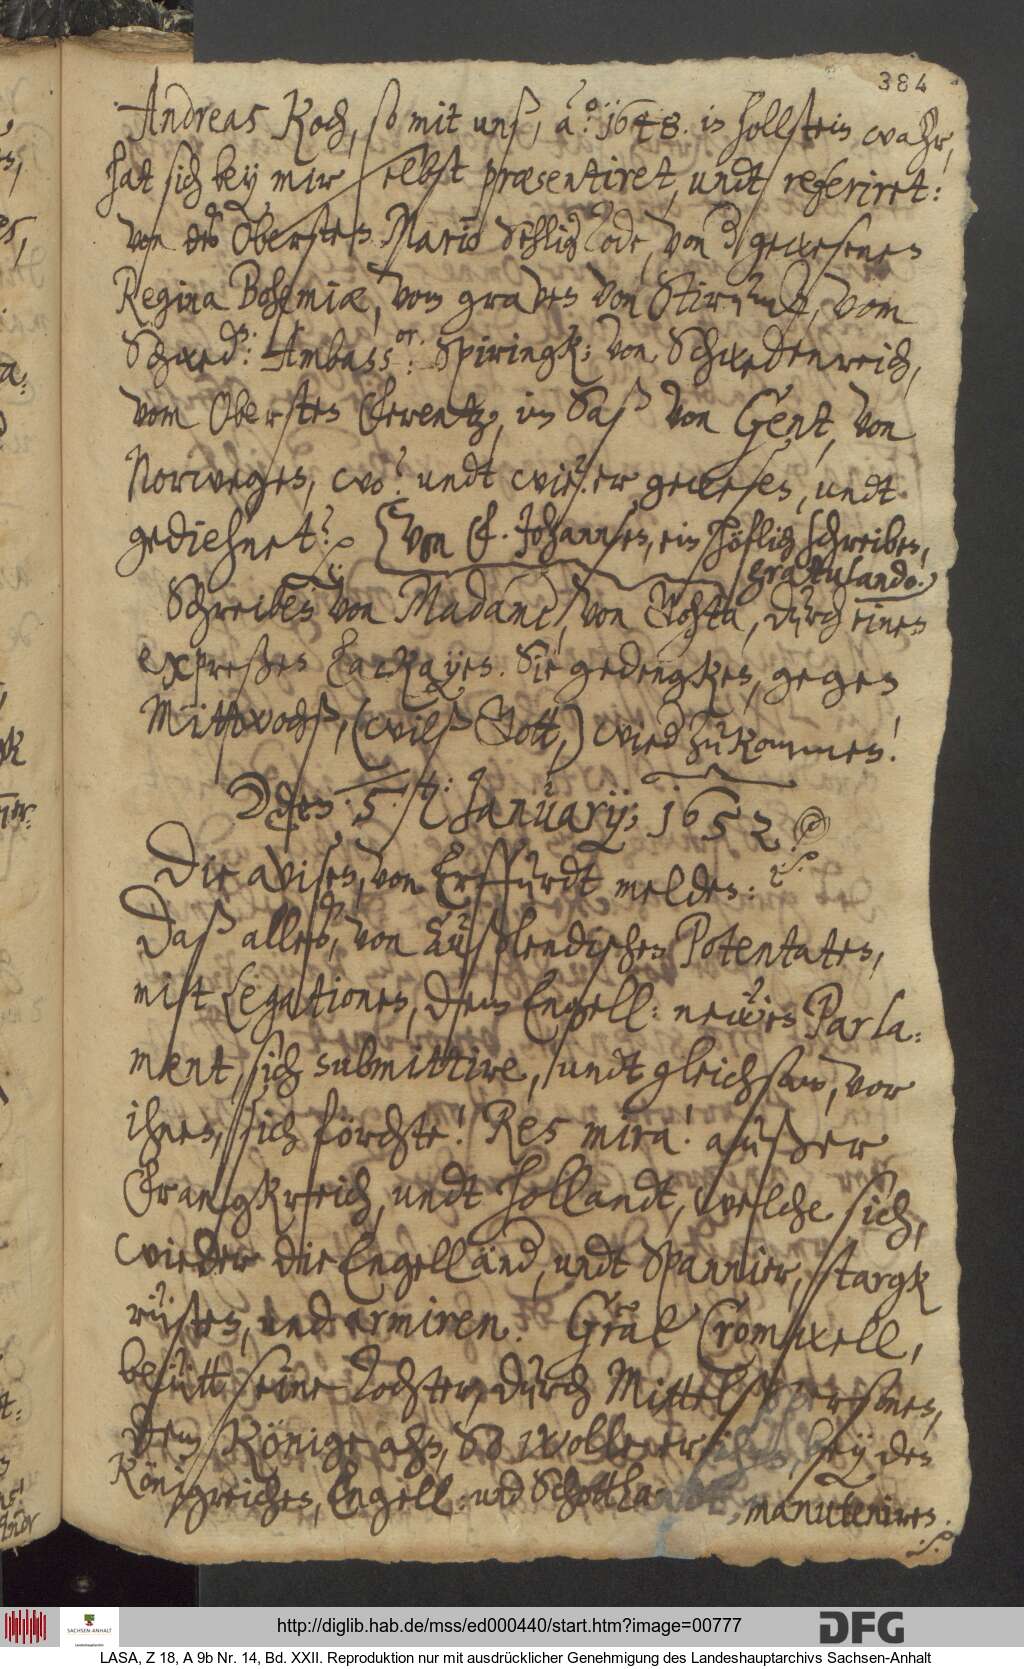 384
Andreas Koch, so mit unß, a.o: 1648. in hollstein wahr,
hat sich bey mir selbst præsentiret, undt referiret:
von des Obersten Mario Tode, von der gewesenen
Regina Bohemiæ, vom graven von Styrumb, vom
Schwed: Ambass:or: Spiringk; von Schwedenreich,
vom Obersten Ferentz, im Saß von Gent, von
Norwegen, wo? undt wie? er gewesen, undt
gediehnet?
von F. Johannsen, ein höflich schreiben,
gratulando.
Schreiben von Madame, von Gohta, durch einen
expreßen Lackayen. Sie gedengken, gegen
Mittwochß, (wilß Gott,) wied zukommen!
den: 5. t: Januarij; 1652.
Die avisen, von Erffurdt melden:
Daß alles, von außlendischen Potentaten,
mit Legationen, dem Engell: newen Parla:
ment, sich submittire, undt gleichsam, vor
ihnen, sich förchte! Res mira! außer
Frangkreich, undt Hollandt, welche sich,
wieder die Engelländ, undt Spannier, stargk
rüsten, und armiren. Gral Cromwell,
beütt seine Tochter, durch Mittelspersonen,
dem Könige ahn, So wolle er ihn, bey den
Königreichen, Engell: und Schottlandt, manuteniren.
http://diglib.hab.de/mss/ed000440/start.htm?image=00777
SACHSEN-ANHALT
DFG
LASA, Z 18, A 9b Nr. 14, Bd. XXII. Reproduktion nur mit ausdrücklicher Genehmigung des Landeshauptarchivs Sachsen-Anhalt